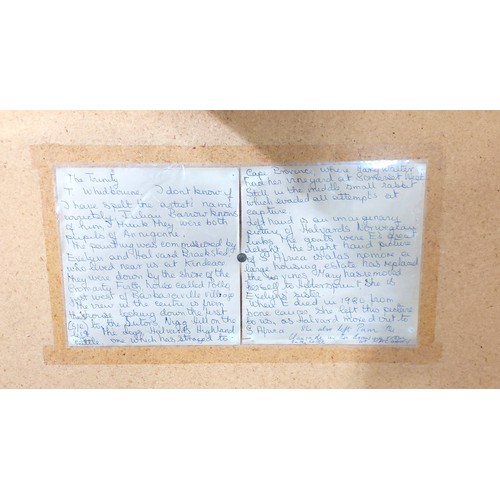 The Trinity
T. Whidbourne, I dont know if
I have spelt the artists name
correctly, Julian Barrow knows
of him, I think they were both
pupils of
His painting was commissioned by
Evelyn and Halvard
who lived near us at Kindeace
they were down by the shore of the
Cromarty Firth, house called Polly
just west of Barbaraville village
The view in the centre is from
the house looking down the first
by the Sutors, Nigg Hill on the
left. The dogs, Halvards Highland
cattle one which has strayed to
Cape Province, where
had his vineyard at Somerset West
Still in the middle small rabbit
which evaded all attempts at
capture
left hand is an imaginary
picture of Halvards Norwegian
The goats were Es great
delight. The right hand picture
of S Africa
large housing estate has replaced
the vines. Mary has moved
as well to She is
Evelyns sister
died in 1980 from
bone cancer. She left this picture
to us, as Halvard moved out to
S Africa. We also left